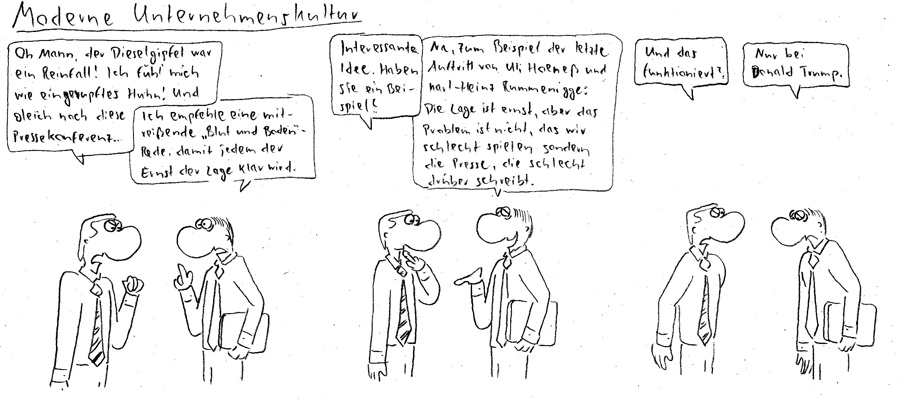 Moderne Unternehmenskultur
Oh Mann, der Dieselgipfel war
ein Reinfall! Ich fühl mich
wie ein gerupftes Huhn! Und
gleich noch diese
Pressekonferenz...
Ich empfehle eine mit-
reißende „Blut und Boden"-
Rede, damit jedem der
Ernst der Lage klar wird.
Interessante
Idee. Haben
Sie ein Bei-
spiel?
Na, zum Beispiel der letzte
Auftritt von Uli Hoeneß und
Karl-Heinz Rummenigge:
Die Lage ist ernst, aber das
Problem ist nicht, das wir
schlecht spielen sondern
die Presse, die schlecht
drüber schreibt.
Und das
funktioniert?
Nur bei
Donald Trump.